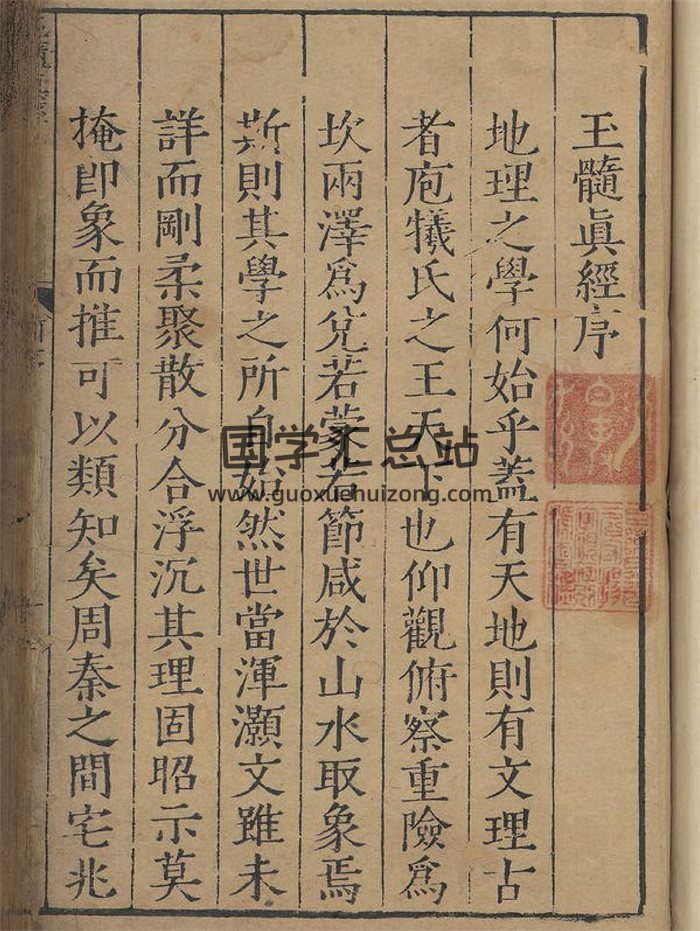 玉髓眞經序
地理之學何始乎蓋有天地則有文理古
者庖犧氏之王天下也仰觀俯察重險爲
坎兩澤爲兌若蒙若節咸於山水取象焉
斯則其學之所自始然世當渾灝文雖未
詳而剛柔聚散分合浮沉其理固昭示莫
掩卽象而推可以類知矣周秦之間宅兆
国学汇总站
www.guoxuehuizong.com